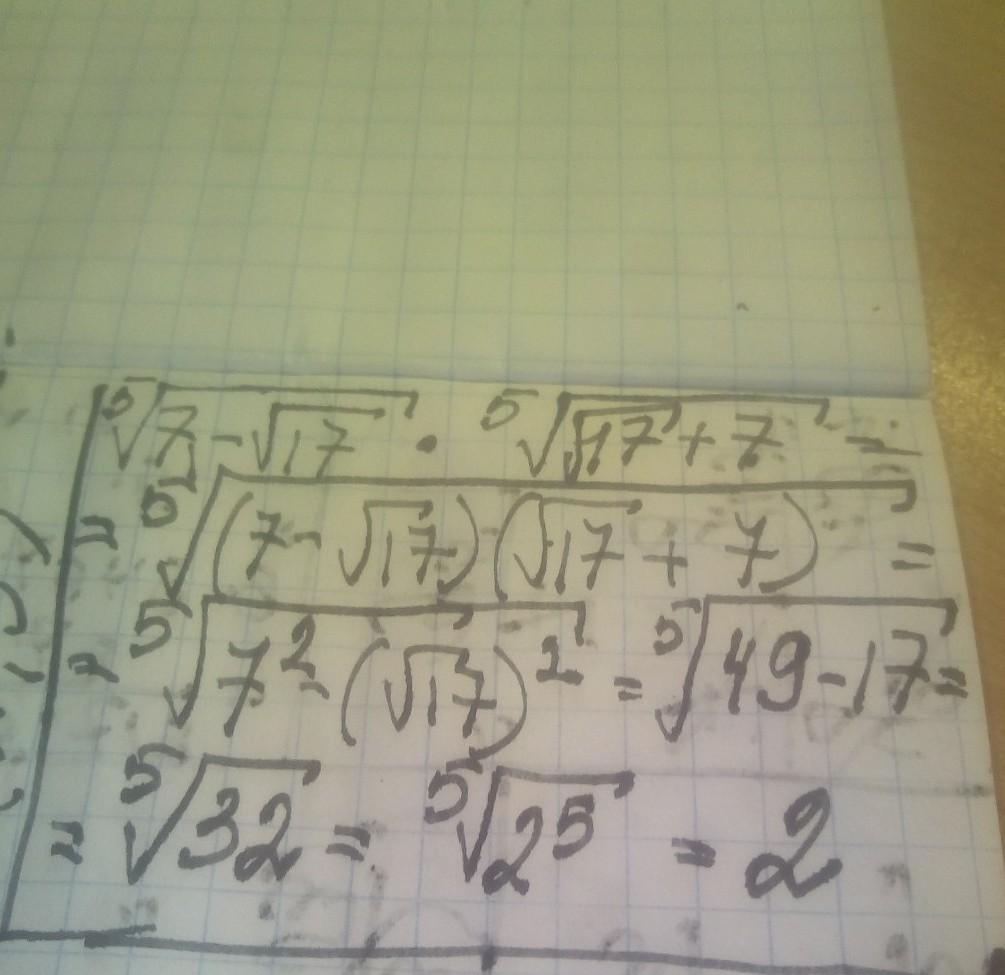 ⁵√(7-√17) · ⁵√(√17+7) =
= ⁵√((7-√17)(√17+7)) =
= ⁵√(7²-(√17)²) = ⁵√(49-17) =
= ⁵√32 = ⁵√(2⁵) = 2